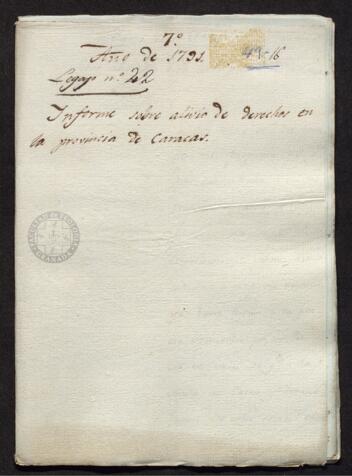 7.º
Año de 1791.
49-16
Legajo nº 42
Informe sobre alivio de derechos en
la provincia de Caracas.
GRANADA